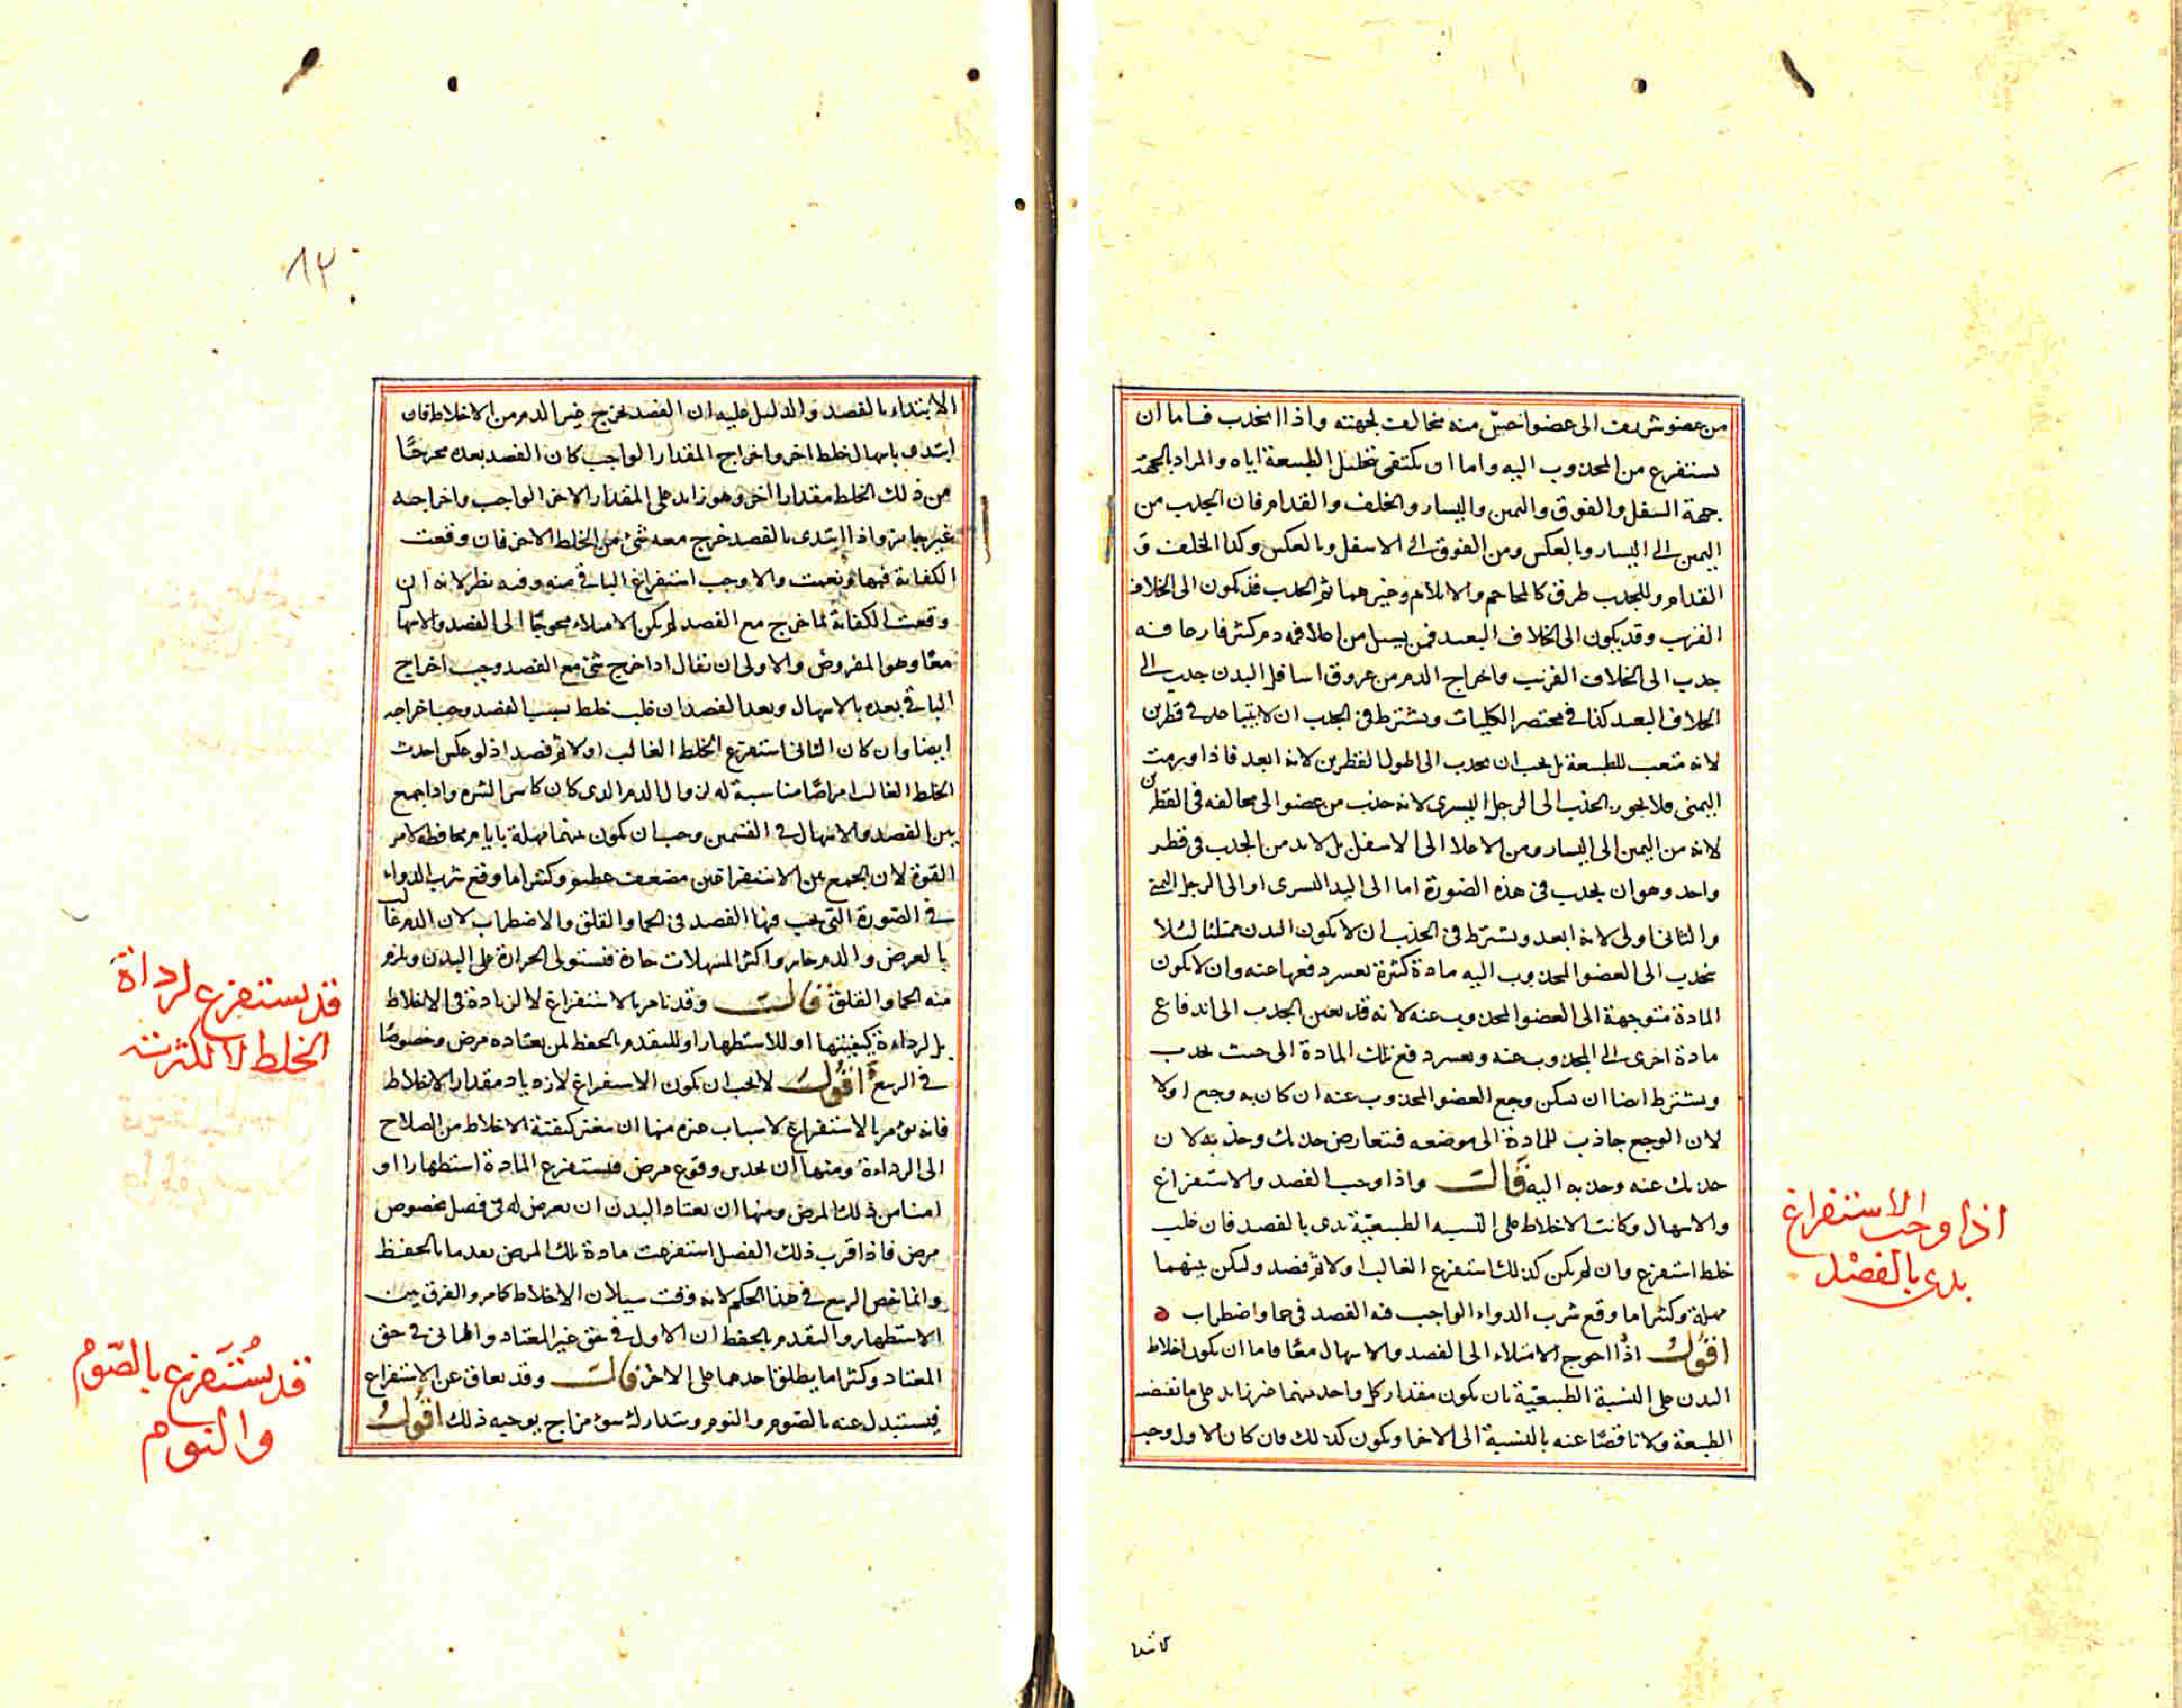 من عضو شريف الى عضو اخسّ منه مخالف لجهته واذا انجذب فاما ان
يستفرغ من المجذوب اليه واما ان يكتفى بتحليل الطبيعة اياه والمراد بالجهة
جهة السفل والفوق واليمين واليسار والخلف والقدام فان الجذب من
اليمين الى اليسار وبالعكس ومن الفوق الى الاسفل وبالعكس وكذا الخلف و
القدام وللجذب طرق كالمحاجم والايلام وغيرهما ثم الجذب قد يكون الى الخلاف
القريب وقد يكون الى الخلاف البعيد فمن يسيل من اعلا فمه دم كثير فارحا فمه
جذب الى الخلاف القريب واخراج الدم من عروق اسافل البدن جذب الى
الخلاف البعيد كذا في مختصر الكليات ويشترط في الجذب ان لا يتباعد في قطرين
لانه متعب للطبيعة بل يجب ان يجذب الى اطول القطرين لانه ابعد فاذا ورمت
اليمنى فلا يجوز الجذب الى الرجل اليسرى لانه جذب من عضو الى مخالفه في القطرين
لانه من اليمين الى اليسار ومن الاعلا الى الاسفل بل لابد من الجذب في قطر
واحد وهو ان يجذب في هذه الصورة اما الى اليد اليسرى او الى الرجل اليمنى
والثاني اولى لانه ابعد ويشترط في الجذب ان لا يكون البدن ممتلئا لئلا
ينجذب الى العضو المجذوب اليه مادة كثيرة يعسر دفعها عنه وان لا يكون
المادة متوجهة الى العضو المجذوب عنه لانه قد يعين الجذب الى اندفاع
مادة اخرى الى المجذوب عنه ويعسر دفع تلك المادة الى حيث يجذب
ويشترط ايضا ان يسكن وجع العضو المجذوب عنه ان كان به وجع اولا
لان الوجع جاذب للمادة الى موضعه فيتعارض جذبك وجذبه لان
جذبك عنه وجذبه اليه قال واذا وجب الفصد والاستفراغ
والاسهال وكانت الاخلاط على النسبة الطبيعيّة بدى بالفصد فان غلب
خلط استفرغ وان لم يكن كذلك استفرغ الغالب اولا ثم فصد وليكن بينهما
مهلة وكثيرا ما وقع شرب الدواء الواجب فيه الفصد في حما واضطراب
اقول اذا احوج الامتلاء الى الفصد والاسهال معًا فاما ان يكون اخلاط
البدن على النسبة الطبيعيّة بان يكون مقدار كل واحد منهما غير زايد على ما تقتضيه
الطبيعة ولا ناقصًا عنه بالنسبة الى الاخر او يكون كذلك فان كان الاول وجب
اذا وجب الاستفراغ
بدى بالفصْد
٨٣
الابتداء بالفصد والدليل عليه ان الفصد يخرج غير الدم من الاخلاط فان
ابتدى باسهال خلط اخر واخراج المقدار الواجب كان الفصد بعده مخرجًا
من ذلك الخلط مقدارا اخر وهو زايد على المقدار الاخر الواجب واخراجه
غير جايز واذا ابتدى بالفصد خرج معه شئ من الخلط الاخر فان وقعت
الكفاية فبها ونعمت والا وجب استفراغ الباقي منه وفيه نظر لانه ان
وقعت الكفاية لما خرج مع الفصد لم يكن الامتلاء محوجًا الى الفصد والاسهال
معًا وهو المفروض والاولى ان يقال اذا خرج شئ مع الفصد وجب اخراج
الباقي بعده بالاسهال وبعد الفصد ان غلب خلط بسبب الفصد وجب اخراجه
ايضا وان كان الثاني استفرغ الخلط الغالب اولا ثم فصد اذ لو عكس احدث
الخلط الغالب امراضًا مناسبة له لزوال الدم الذي كان كاسر الشره واذا جمع
بين الفصد والاسهال في القسمين وجب ان يكون بينهما مهلة بايام محافظة لامر
القوة لان الجمع بين الاستفراغين مضعف عظيم وكثيرا ما وقع شرب الدواء
في الصورة التي يجب فيها الفصد في الحما والقلق والاضطراب لان الدم غالب
بالعرض والدم حار واكثر المسهلات حارة فيستولى الحرارة على البدن ويلزم
منه الحما والقلق قال وقد نامر بالاستفراغ لا لزيادة في الاخلاط
بل لرداءة كيفيتها او للاستظهار او للتقدم بالحفظ لمن يعتاده مرض وخصوصًا
في الربيع اقول لا يجب ان يكون الاستفراغ لازدياد مقدار الاخلاط
فانه يؤمر بالاستفراغ لاسباب غيره منها ان يتغير كيفيّة الاخلاط من الصلاح
الى الرداءة ومنها ان يحدس وقوع مرض فيستفرغ المادة استظهارا او
امنا من ذلك المرض ومنها ان يعتاد البدن ان يعرض له في فصل مخصوص
مرض فاذا قرب ذلك الفصل استفرغت مادة تلك المرض بعدما بالحفظ
وانما خص الربيع في هذا الحكم لانه وقت سيلان الاخلاط كما مر والفرق بين
الاستظهار والتقدم بالحفظ ان الاول في حق غير المعتاد والثاني في حق
المعتاد وكثيرا ما يطلق احدهما على الاخر قال وقد يعاف عن الاستفراغ
فيستبدل عنه بالصوم والنوم ويتدارك سوء مزاج يوجبه ذلك اقول
قد يستفرغ لرداة
الخلط لا لكثرته
قد يُسْتَفرغ بالصّومُ
والنوم